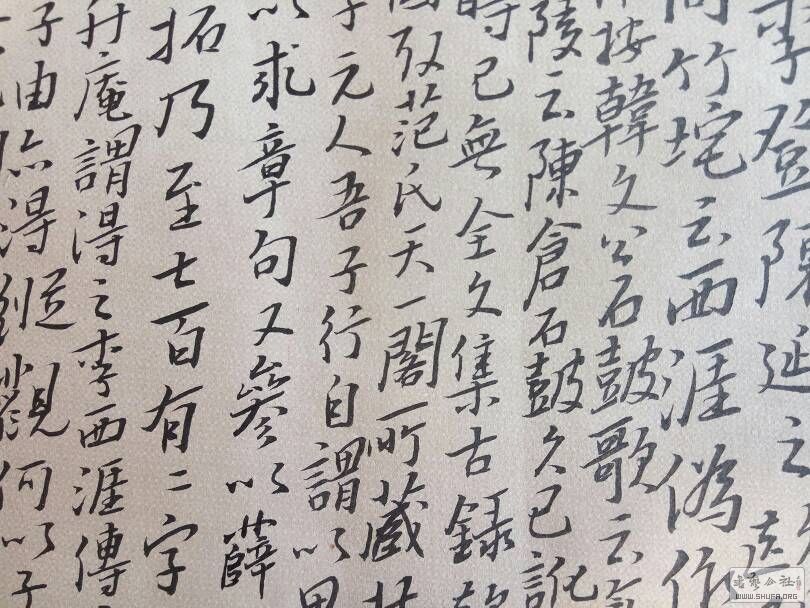 李登陳延之
竹垞云西涯偽作
按韓文公石鼓歌云
陵云陳倉石鼓久已訛
時已無全文集古錄
攷范氏天一閣所藏
子元人吾子行自謂以甲
以求章句又參以薛
拓乃至七百有二字
升庵謂得之李西涯傳
子由亦得縱觀何以子
书艺公社
WWW.SHUFA.ORG